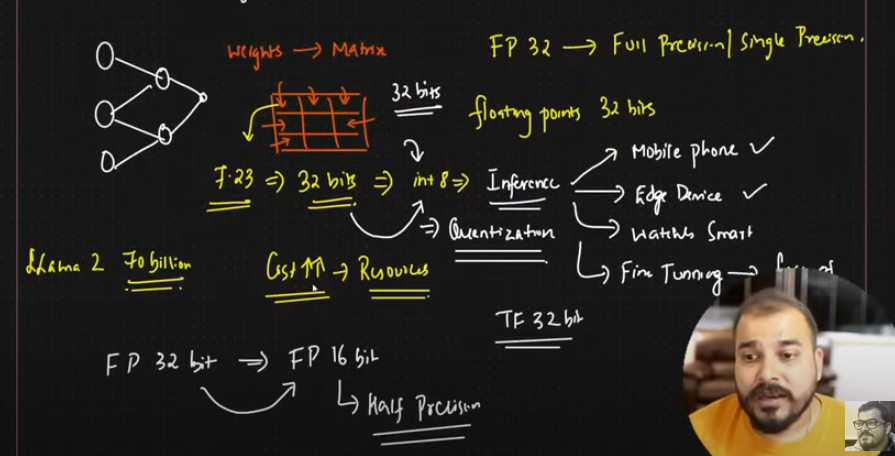 Weights → Matrix
FP 32 → Full Precision/Single Precison.
32 bits
floating points 32 bits
7.23 ⇒ 32 bits ⇒ int 8 ⇒ Inference
Mobile phone ✓
Edge Device ✓
Watchs Smart
⇒ Quantization
Fine Tunning →
LLama 2 70 billion
Cost ↑↑ → Resources
TF 32 bit
FP 32 bit ⇒ FP 16 bit
Half Precision